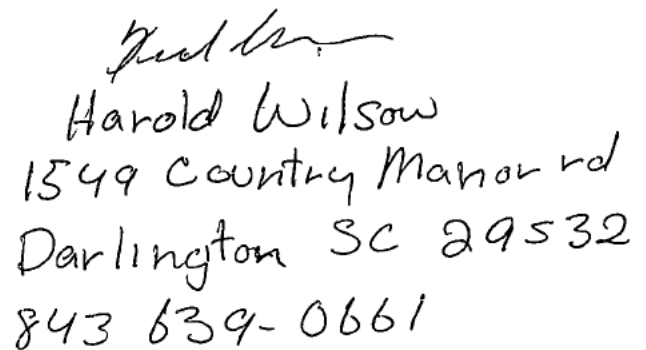 Harold Wilson
1549 Country Manor rd
Darlington SC 29532
843 639-0661